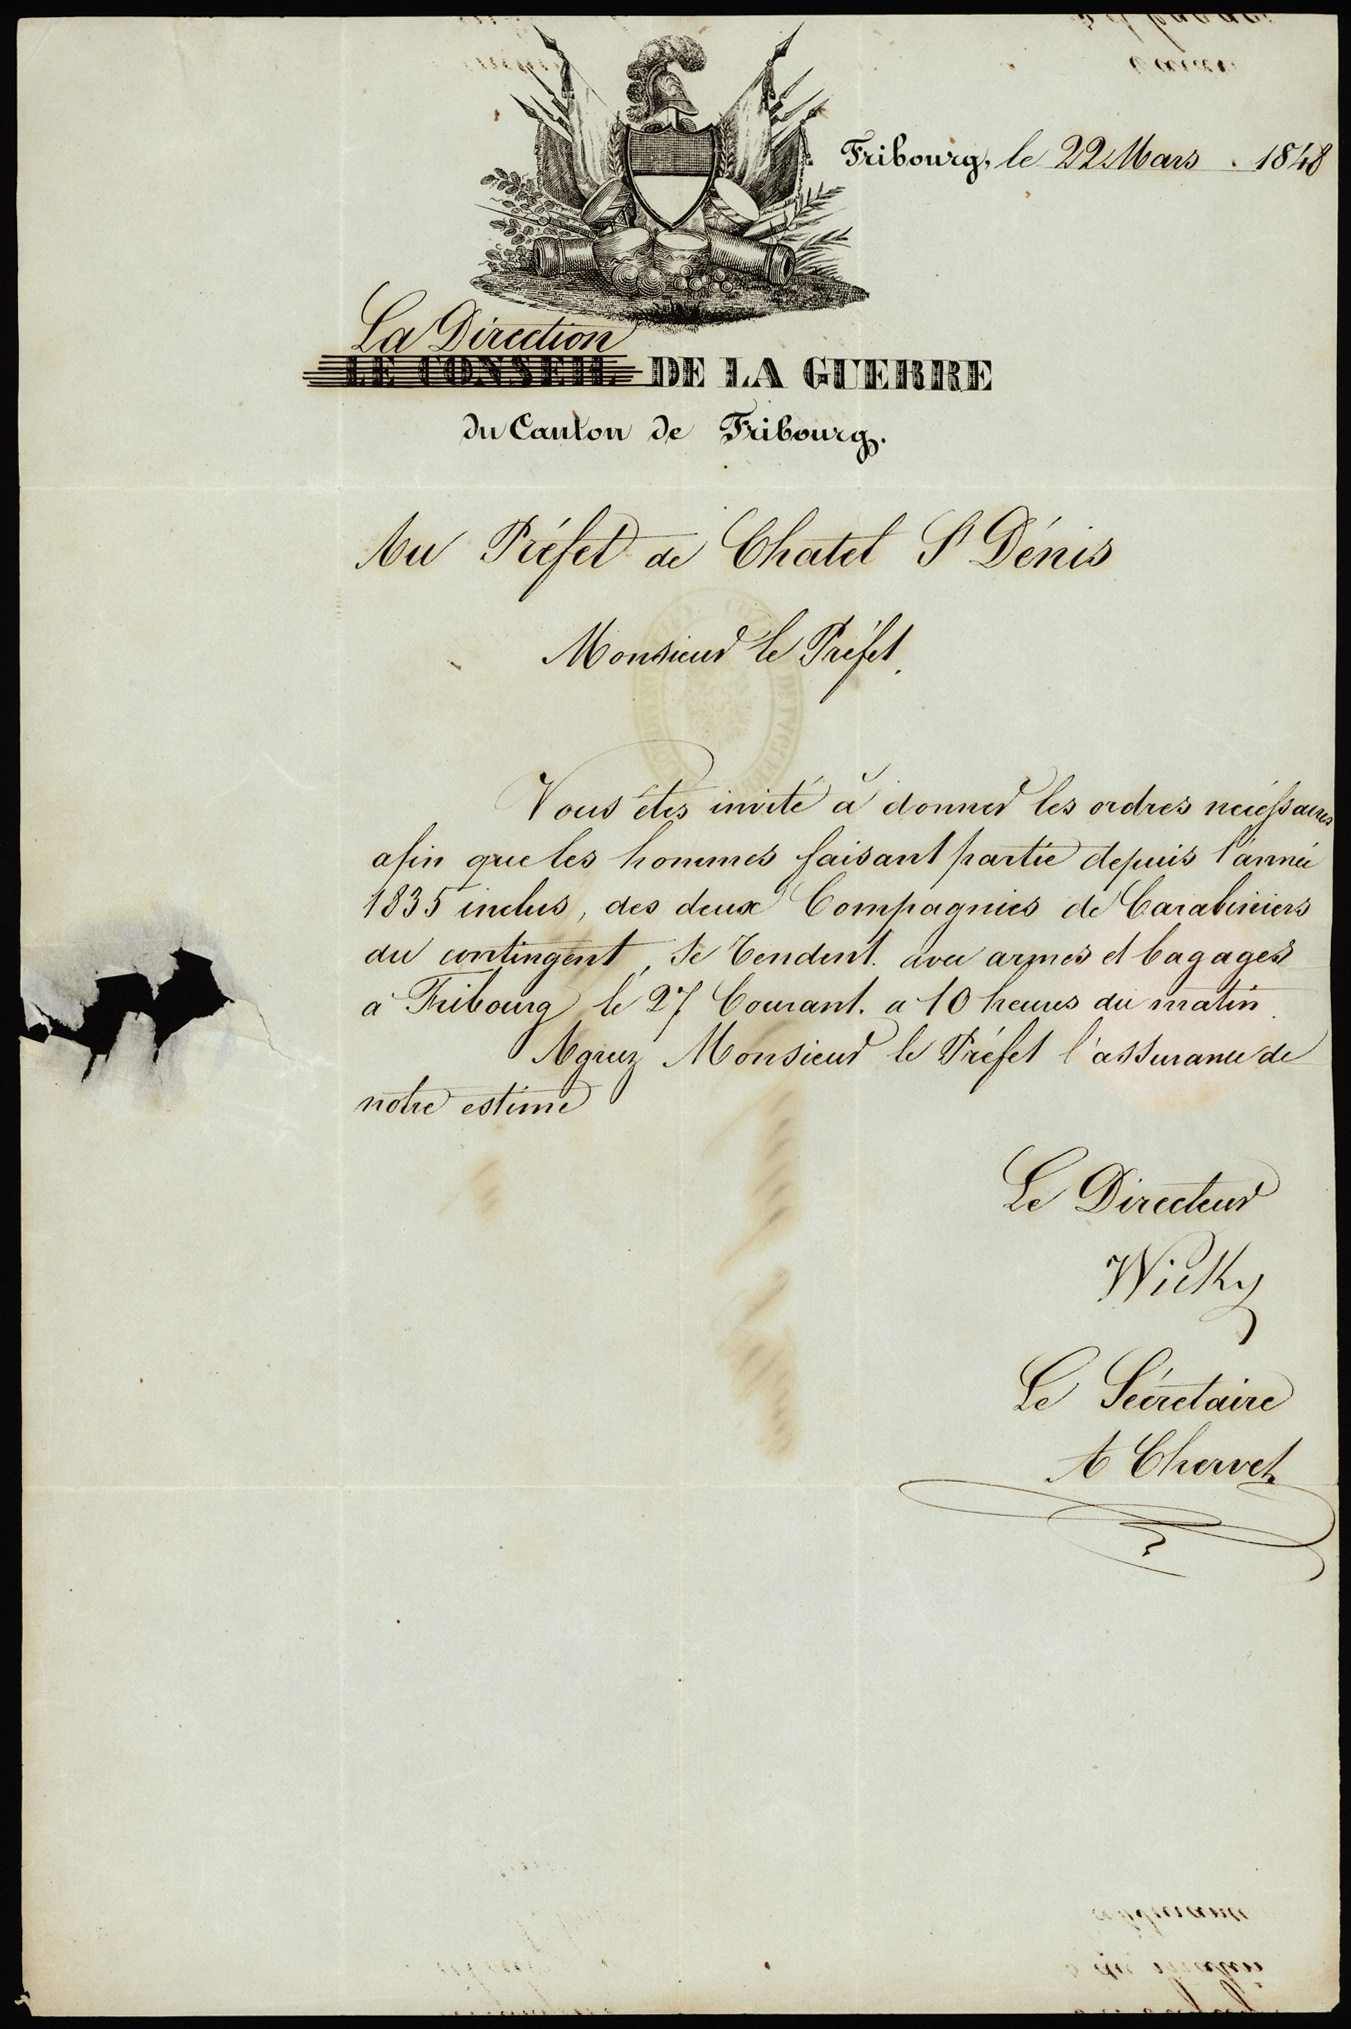 Fribourg, le 22 Mars 1848
La Direction
LE CONSEIL DE LA GUERRE
du Canton de Fribourg.
Au Préfet de Chatel St Dénis
Monsieur le Préfet.
Vous êtes invité à donner les ordres nécessaires
afin que les hommes faisant partie depuis l'année
1835 inclus, des deux Compagnies de Carabiniers
du contingent, se rendent avec armes et bagages
à Fribourg le 27 Courant. a 10 heures du matin.
Agréez Monsieur le Préfet l'assurance de
notre estime
Le Directeur
Wicky
Le Sécretaire
A Chervet